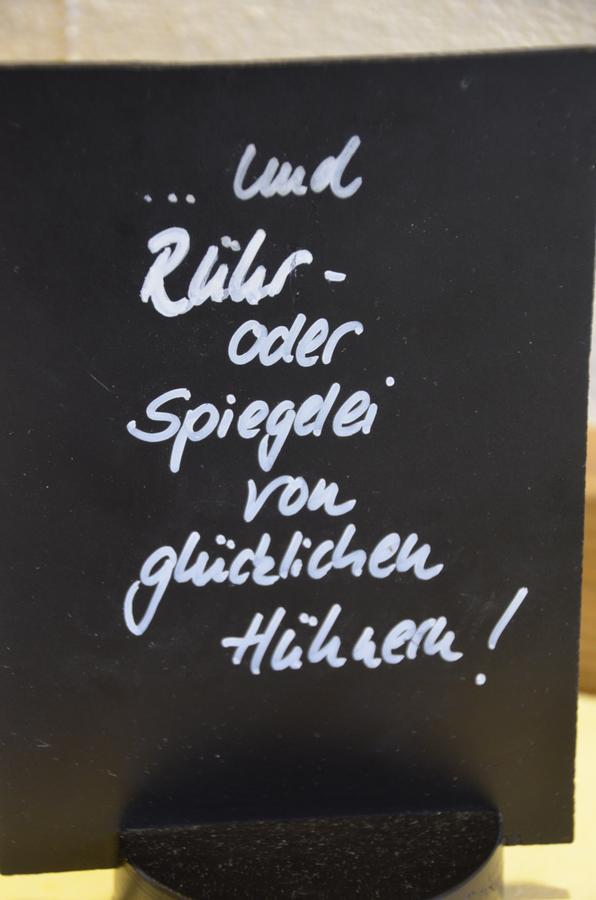 ... und
Rühr-
oder
Spiegelei
von
glücklichen
Hühnern!